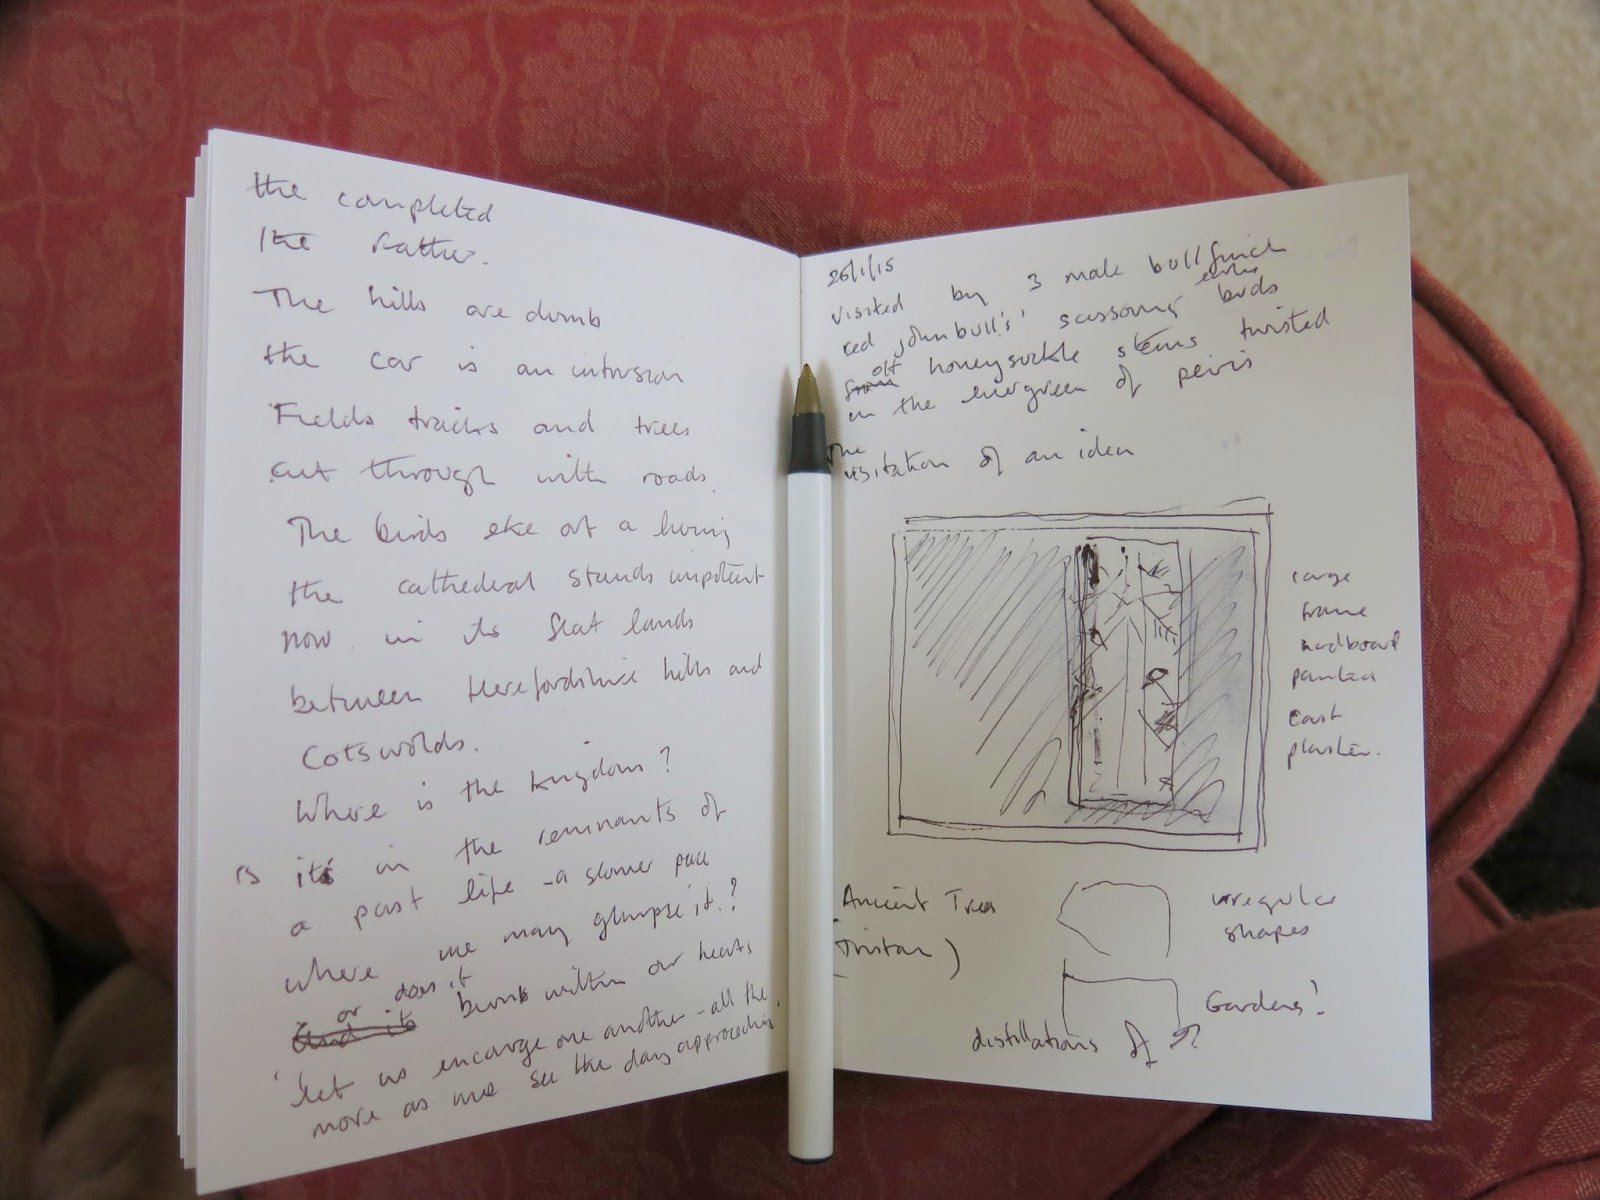 the completed
the Father.
The hills are dumb
the car is an intrusion
Fields tracks and trees
cut through with roads.
The birds eke out a living
the cathedral stands impotent
now in its flat lands
between Herefordshire hills and
Cotswolds.
Where is the kingdom?
is it in the remnants of
a past life - a slower pace
where we may glimpse it?
or does it
and it burn within our hearts
'let us encourage one another - all the
more as we see the day approaching.'
26/1/15
visited by 3 male bullfinch
red 'john bull's' scissoring early buds
from off honeysuckle stems twisted
in the evergreen of pieris
The
visitation of an idea
large
frame
hardboard
painted
cast
plaster.
Ancient Trees
Tristan)
irregular
shapes
Gardens!
distillations of